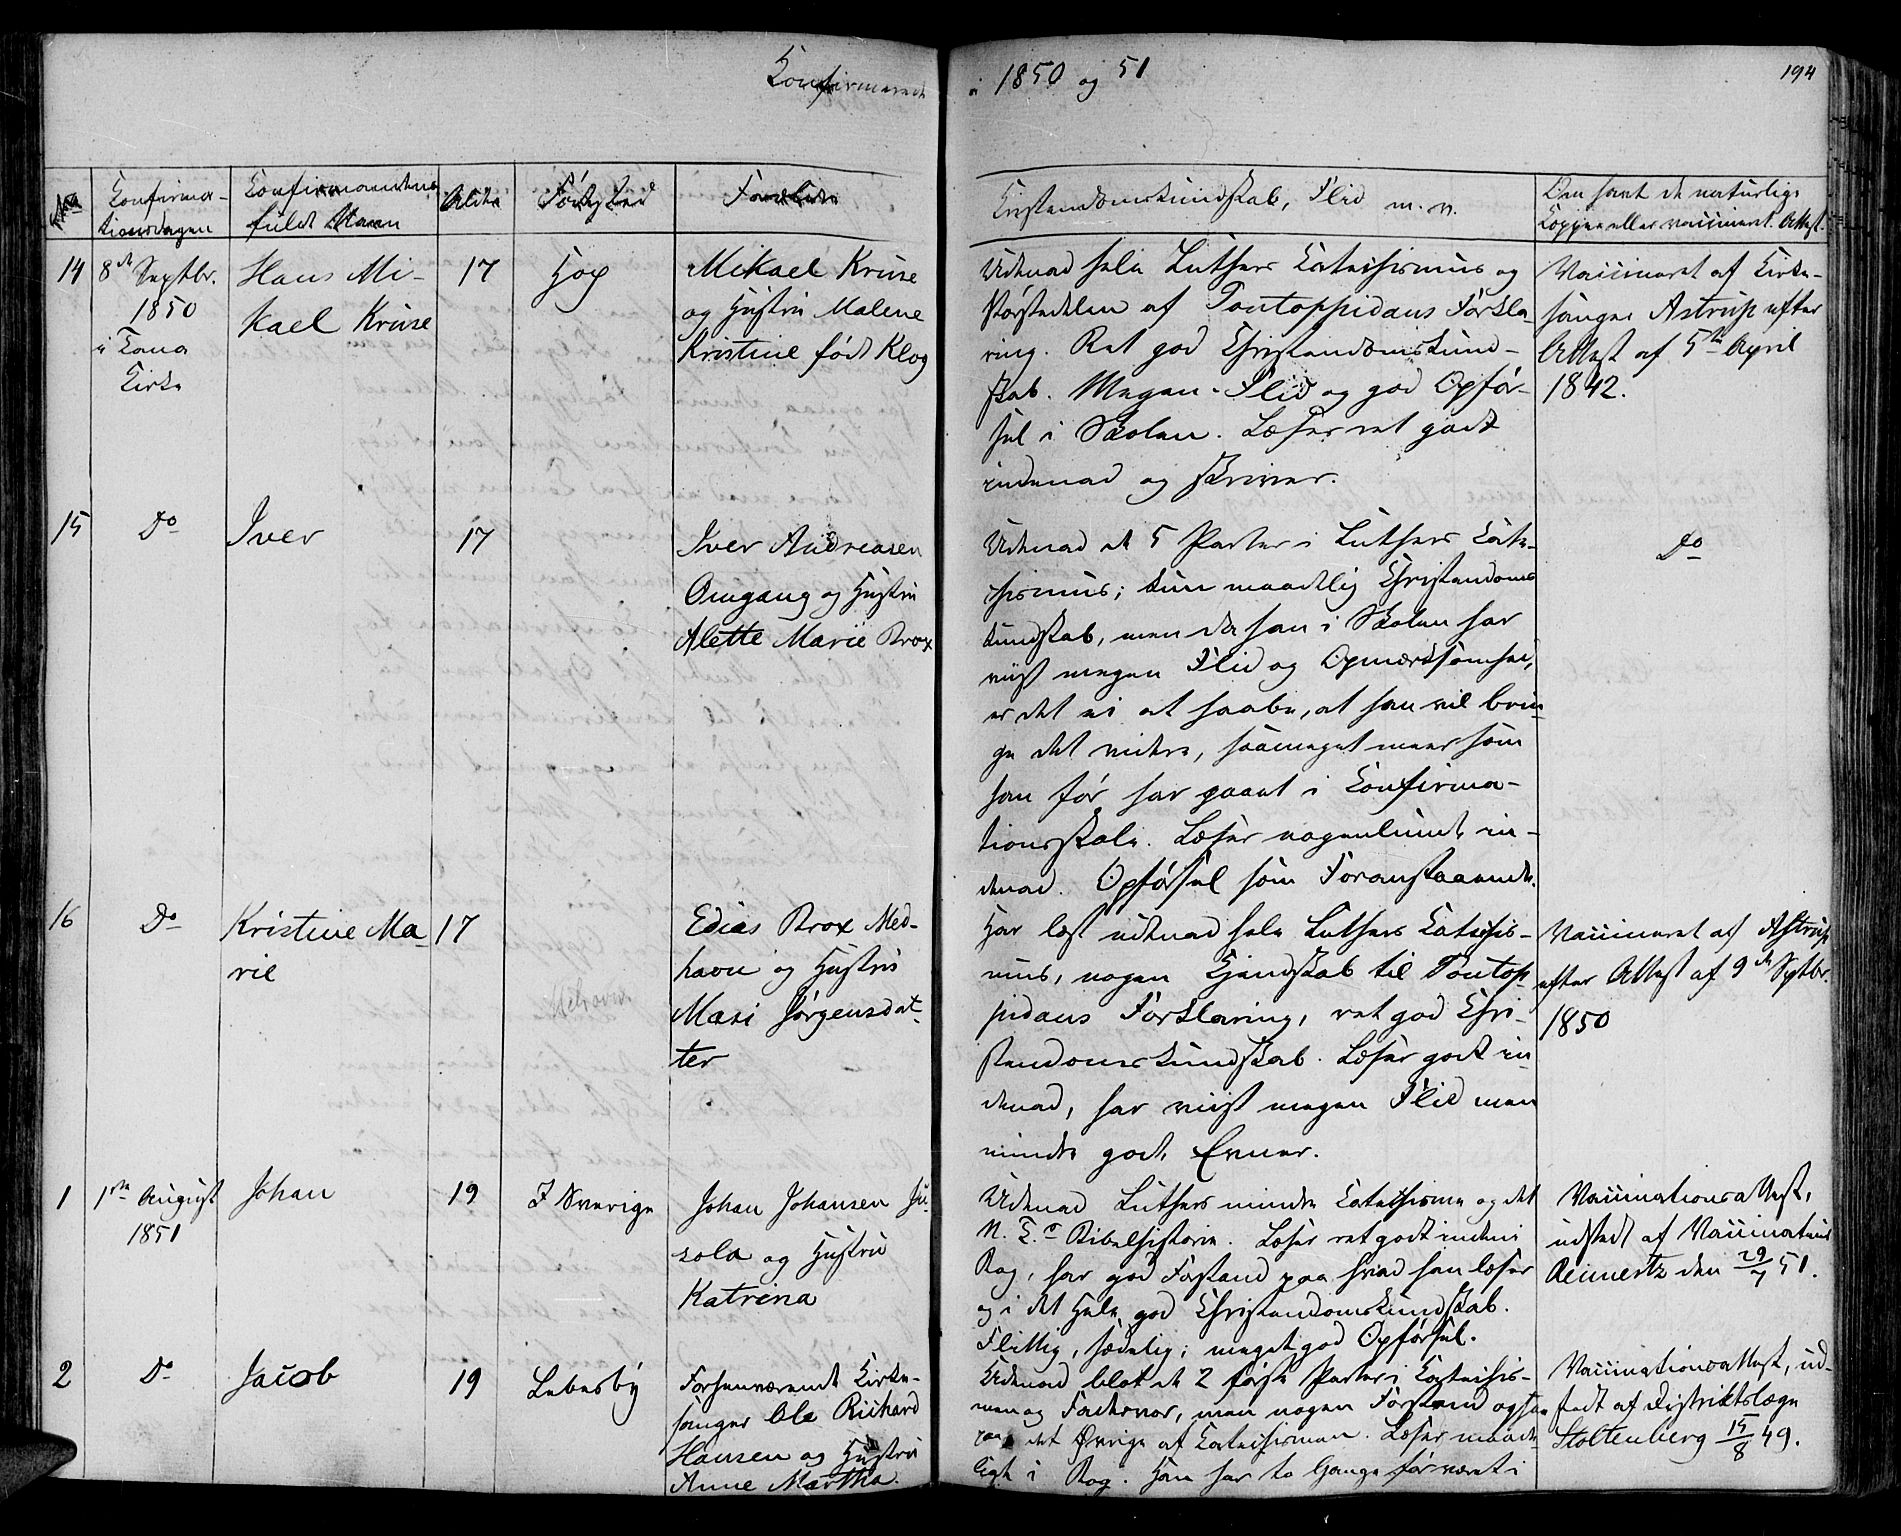 Konfirmerede
i 1850 og 51
194
No
Konfirma-
tionsdagen
Konfirmandens
fulde Navn
Alder
Fødested
Forældre
Kristendomskundskab, Flid m. v.
Om havt de naturlige
Kopper eller vaccineret. Attest.
14
8de Septbr.
1850
i Tana
Kirke
Hans Mi-
kael Kruse
17
Hop
Mikael Kruse
og Hustru Malene
Kristine født Klog
Udenad hele Luthers Catechismus og
Størstedelen af Pontoppidans Forkla
ring. Ret god Christendomskund-
skab. Megen Flid og god Opfør-
sel i Skolen. Læser ret godt
indenad og skriver.
Vaccineret af Kirke-
sanger Astrup efter
Attest af 5te April
1842.
15
Do
Iver
17
Iver Andreasen
Omgang og Hustru
Alette Marie Brox
Udenad de 5 Parter i Luthers Cate-
chismus; kun maadelig Christendoms
kundskab, men da han i Skolen har
viist megen Flid og Opmærksomhed,
er det ei at haabe, at han vil brin-
ge det videre, saameget meer som
han før har gaaet i Confirma-
tionsskole. Læser nogenlunde in-
denad. Opførsel som Foranstaaende.
Do
16
Do
Kristine Ma
rie
17
Edias Brox Med-
havn og Hustru
Mari Jørgensdat-
ter
Har læst udenad hele Luthers Catechis-
mus, nogen Kjendskab til Pontop
pidans Forklaring, ret god Chri-
stendomskundskab. Læser godt in-
denad, har viist megen Flid men
mindre gode Evner.
Vaccineret af Astrup
efter Attest af 9de Septbr.
1850
1
1ste August
1851
Johan
19
I Sverige
Johan Johansen Ju-
sola og Hustru
Katrina
Udenad Luthers mindre Catechisme og det
N. T.s Bibelhistorie. Læser ret godt inden i
Bog, har god Forstand paa hvad han læser
og i det Hele god Christendomskundskab.
Flittig, sædelig; meget god Opførsel.
Vaccinationsattest,
udstedt af Vaccinateur
Reinertz den 29/7 51.
2
Do
Jacob
19
Lebesby
Forhenværende Kirke-
sanger Ole Richard
Hansen og Hustru
Anne Martha.
Udenad blot de 2 første Parter i Catechis-
men og Fadervor, men nogen Forstand ogsaa
paa det Øvrige af Catechismen. Læser maade-
ligt i Bog. Han har to Gange før været i
Vaccinationsattest, ud-
stedt af Distriktslæge
Stoltenberg 15/8 49.